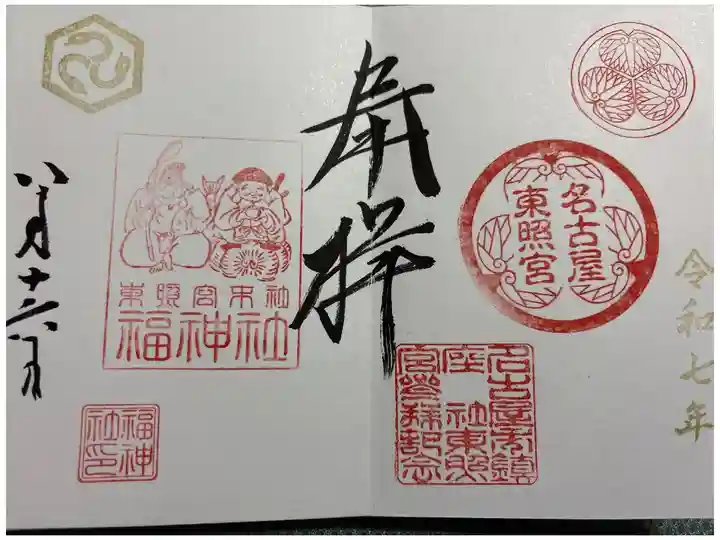 令和七年
名古屋
東照宮
名古屋市鎮
座 社東照
宮參拜記念
奉拝
東照宮末社
福神社
福神
社印
八月十六日